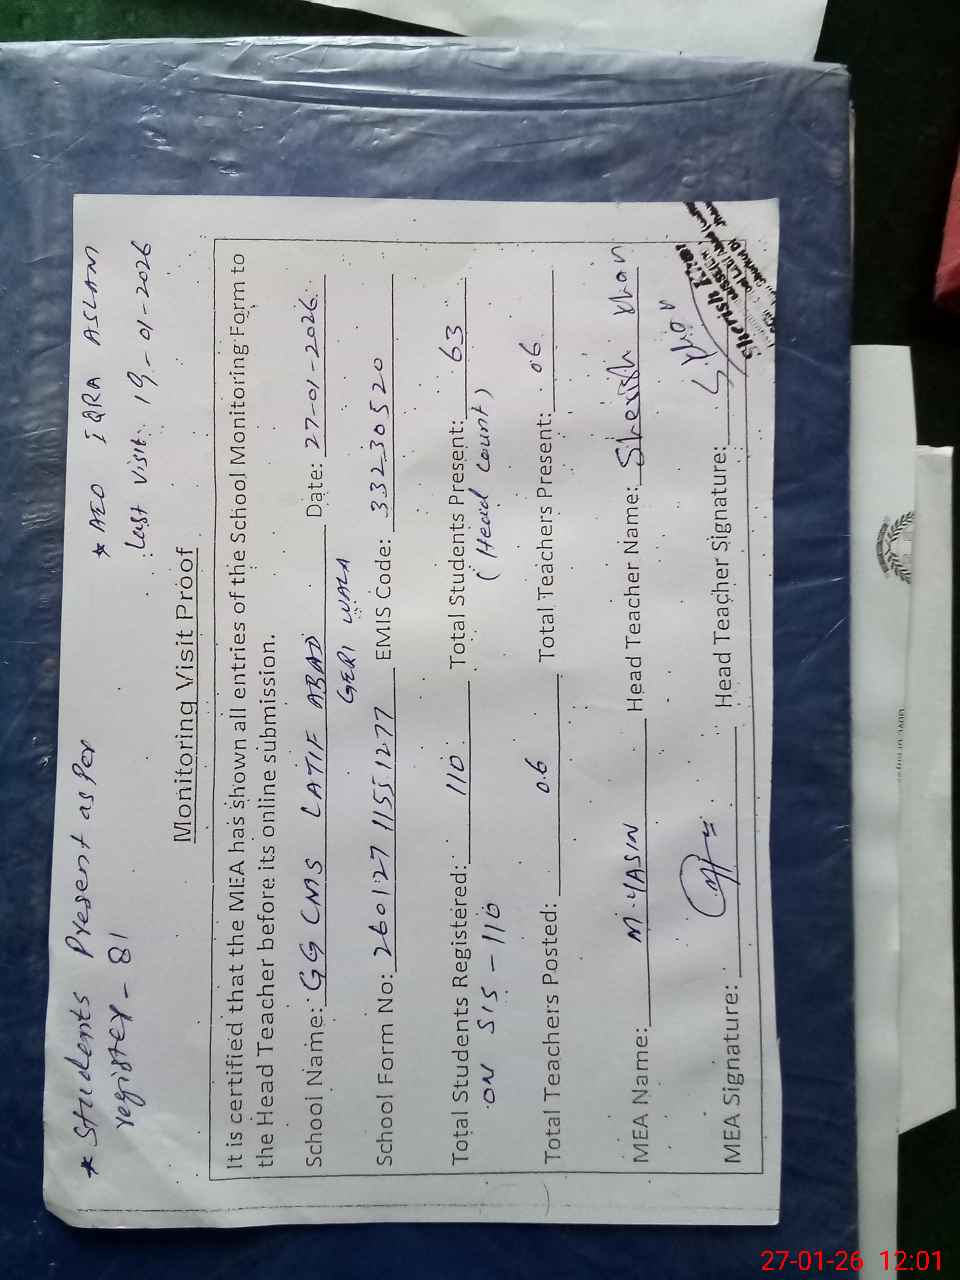 * Students Present as Per
register - 81
* AEO IQRA ASLAM
Last visit: 19-01-2026
Monitoring Visit Proof
It is certified that the MEA has shown all entries of the School Monitoring Form to
the Head Teacher before its online submission.
School Name: GG CMS LATIF ABAD Date: 27-01-2026
GERI WALA
School Form No: 260127 11551277 EMIS Code: 33230520
Total Students Registered: 110 Total Students Present: 63
ON SIS - 110 (Head Count)
Total Teachers Posted: 06 Total Teachers Present: 06
MEA Name: M. YASIN Head Teacher Name: Sherish Khan
MEA Signature: Head Teacher Signature: Khan
Sherish Khan
27-01-26 12:01